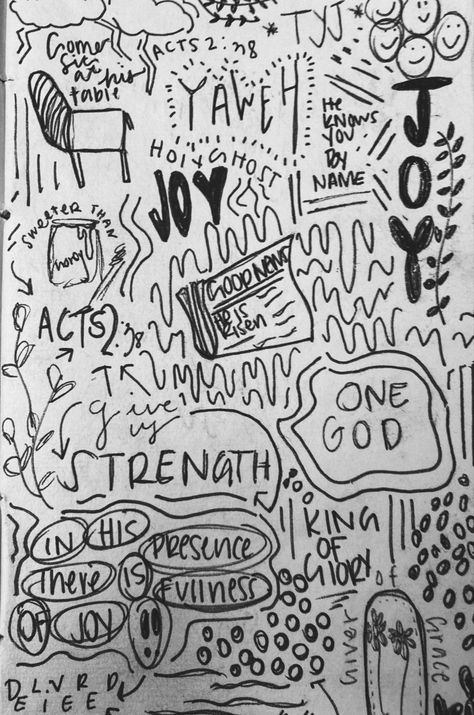 TYJ
Come
sit
at his
table
ACTS 2:38
YAWEH
HE
KNOWS
YOU
BY
NAME
JOY
HOLY GHOST
JOY
SWEETER THAN
HONEY
GOOD NEWS
He is
Risen
ACTS 2:38
give
us
STRENGTH
ONE
GOD
IN HIS
PRESENCE
THERE IS
FULLNESS
OF JOY!!
KING
OF
GLORY
of
Grace
DELIVERED